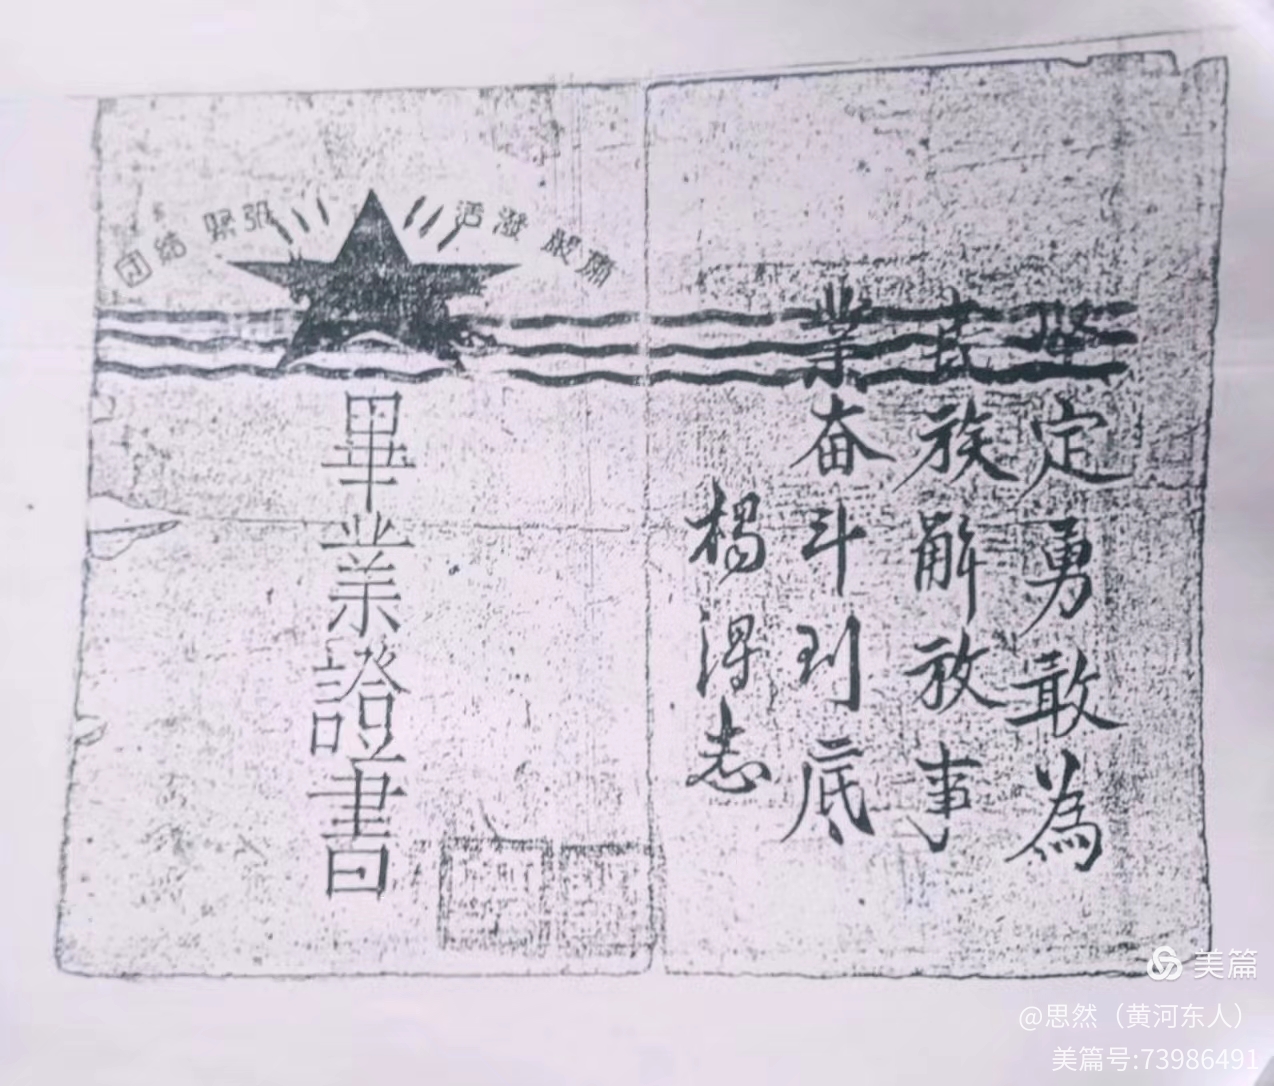 坚定勇敢為
民族解放事
業奋斗到底
楊得志
团結 緊張 活潑 嚴肅
畢業證書
美篇
@思然（黄河东人）
美篇号:73986491